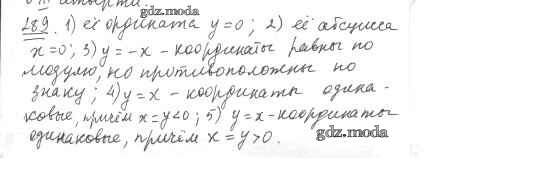 четверти.
gdz.moda
289. 1) её ордината y=0; 2) её абсцисса
x=0; 3) y=-x - координаты равны по
модулю, но противоположны по
знаку; 4) y=x - координаты одина-
ковые, причём x=y<0; 5) y=x - координаты
одинаковые, причём x=y>0.
gdz.moda